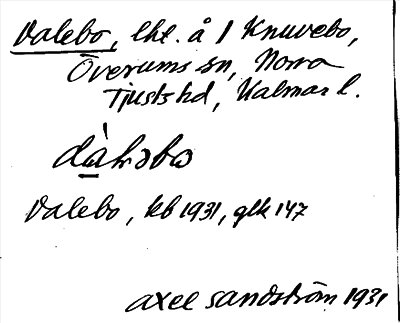 Dalebo, lht. å 1 Knuvebo,
Överums sn, Norra
Tjusts hd, Kalmar l.
dàɫɔbo
Dalebo, kb 1931, glk 147
Axel Sandström 1931